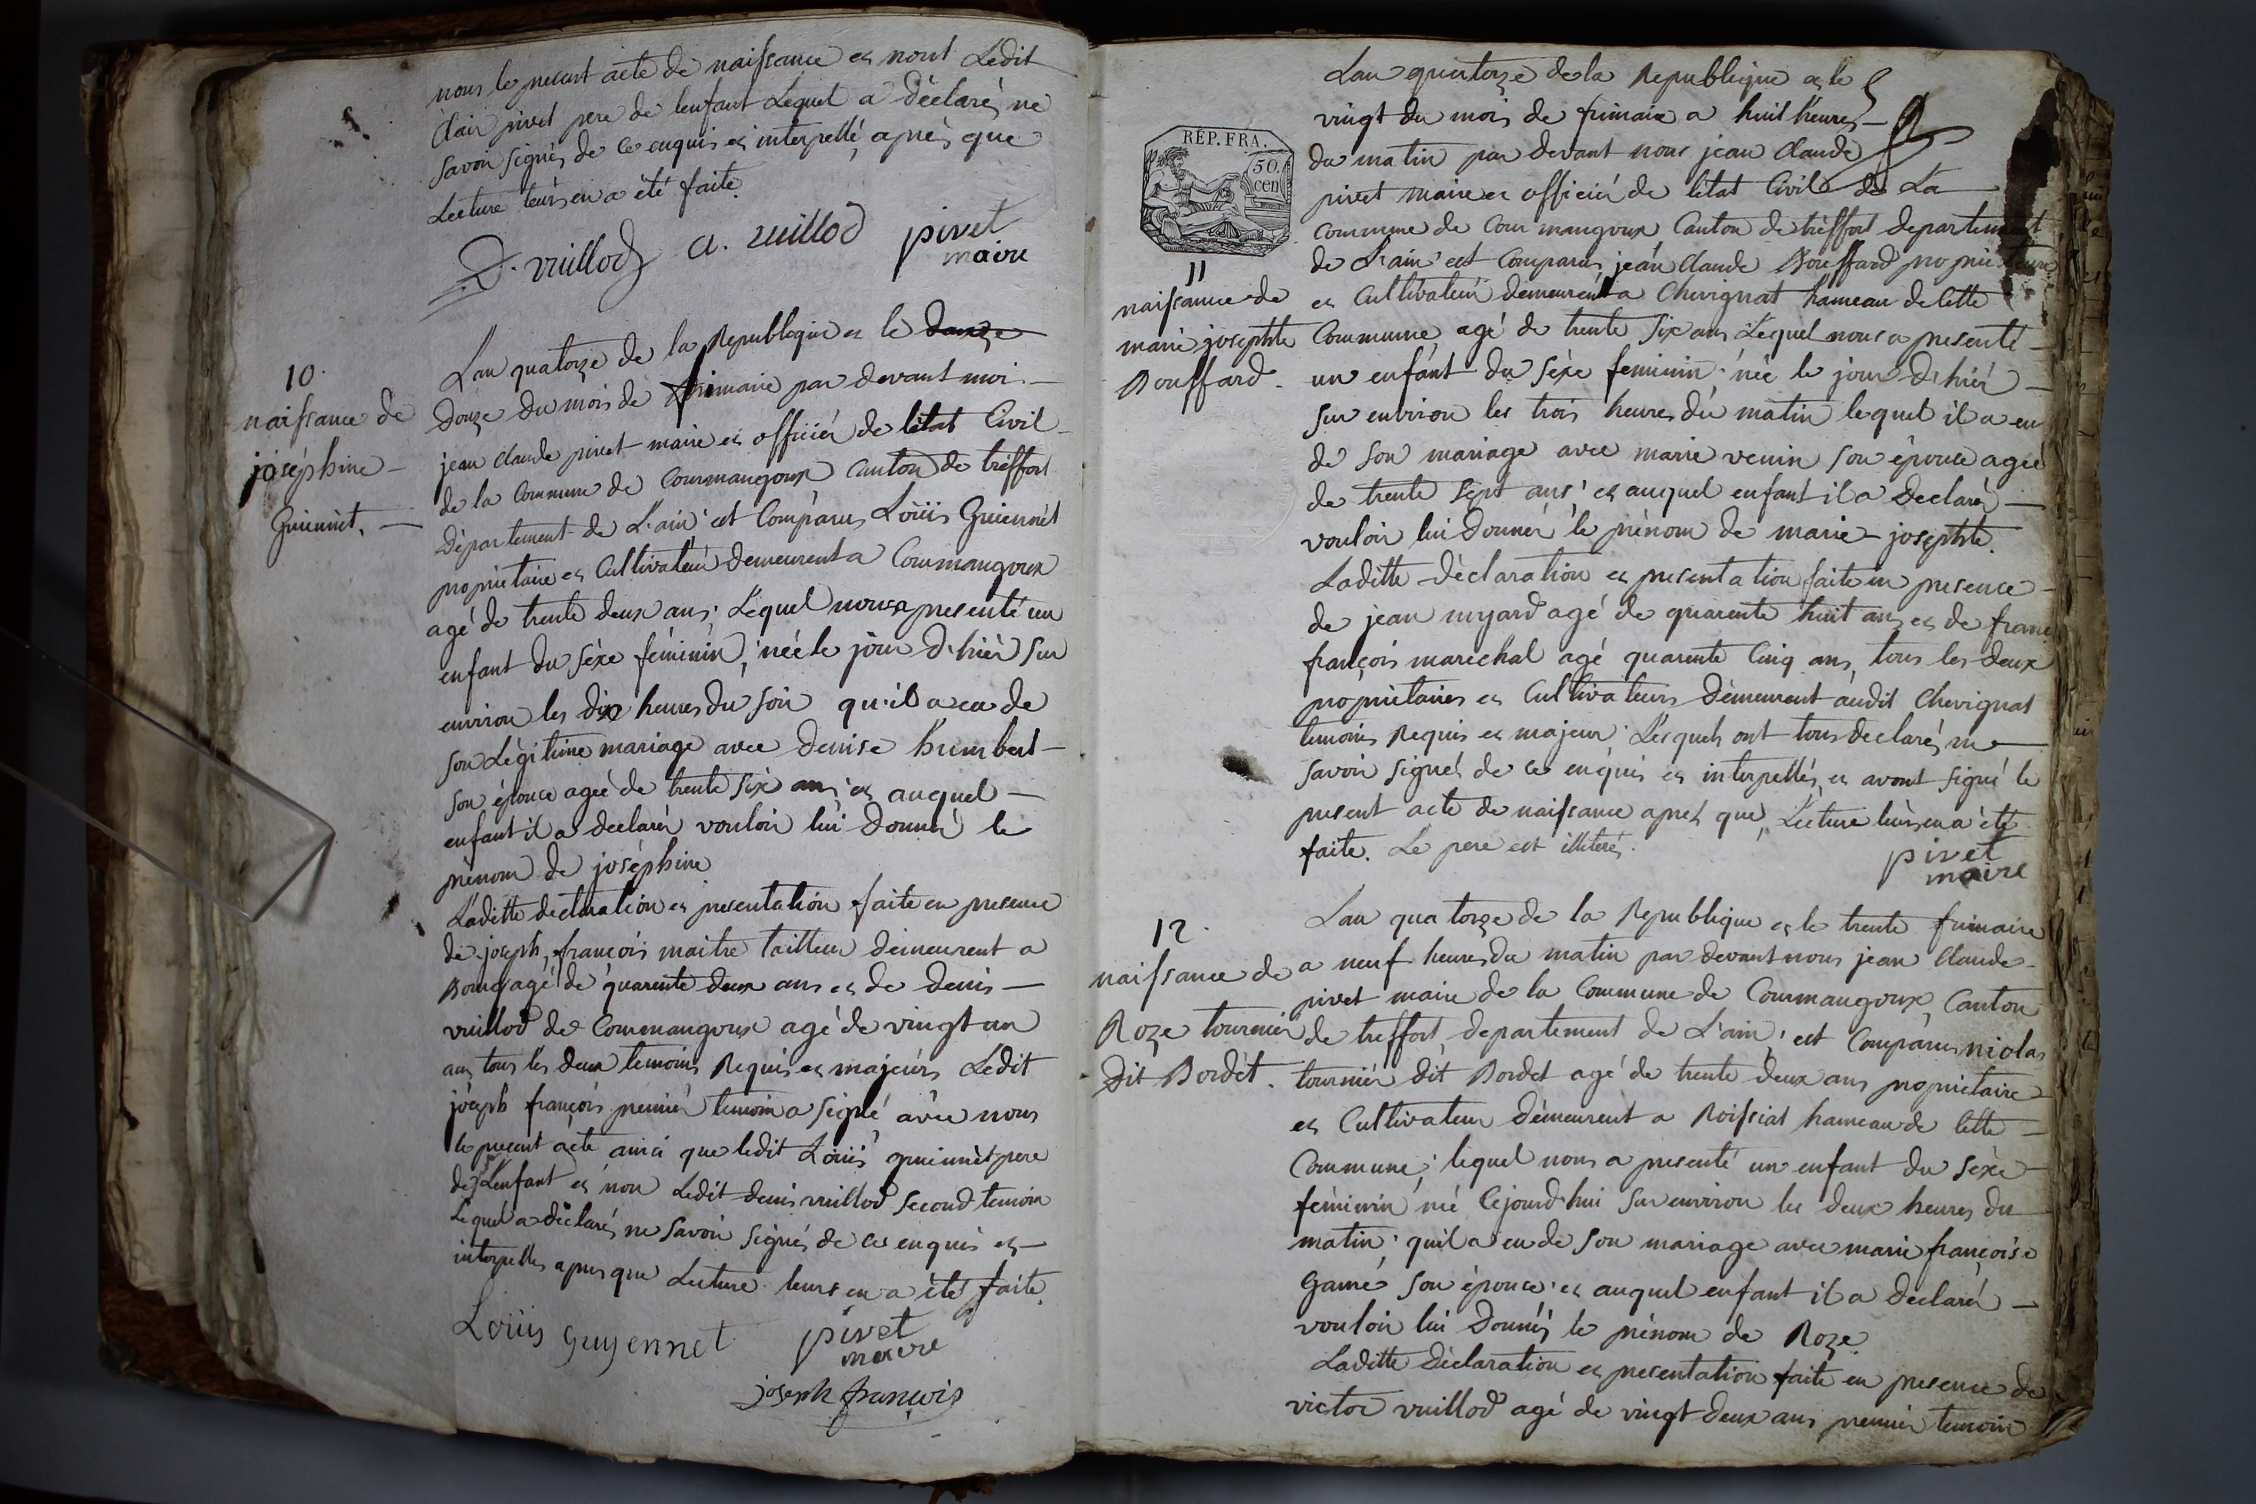 nous le present acte de naissance et nont Ledit
Clair pivet pere de lenfant Lequel a déclaré ne
savoir signér de ce enquis et interpellé après que
Lecture leurs en a été faite.
D. vuillod a. vuillod pivet
maire
10.
naissance de
joséphine
Guiennèt.
L'an quatorze de la Republique et le douze
Douze du mois de frimaire par devant moi
jean Claude pivet maire et officiér de létat Civil
de la Commune de Courmangoux Canton de tréffort
Département de L'ain est Comparus Loüis Guiennèt
proprietaire et Cultivateur demeurent a Courmangoux
agé de trente deux ans. Léquel nous a presenté un
enfant du séxe féminin, née le jour d'hièr sur
environ les dix heures du soir qu'il a eu de
son Légitime mariage avec Denise humbert
son épouce agée de trente six ans et auquel
enfant il a declarér vouloir lui donnér le
prénom de joséphine
Laditte declaration et presentation faite en presence
de joseph françois maitre tailleur demeurent a
Bourg agé de quarente deux ans et de denis
vuillod de Courmangoux agé de vingt un
ans tous les deux temoins Requis et majeurs Ledit
joseph françois premiér temoin a signé avec nous
le present acte ainsi que ledit Loüis guiennèt pere
de L'enfant et non Ledit denis vuillod second temoin
Lequel a déclaré ne savoir signér de ce enquis et
interpellés apres que Lecture leurs en a été faite.
Loüis guyennet pivet
maire
joseph françois
RÉP. FRA.
50.
cen
11
naissance de
marie josephte
Bouffard.
Lan quatorze de la Republique et le
vingt du mois de frimaire a huit heures
du matin par devant nous jean Claude
pivet maire et officiér de létat Civil de La
Commune de Courmangoux Canton de tréffort departement
de L'ain est Comparus jean Claude Bouffard proprietaire
et Cultivateur demeurent a Chevignat hameau de Cette
Commune, agé de trente six ans Lequel nous a presenté
un enfant du séxe feminin née le jour d'hiér
sur environ les trois heures du matin lequel il a eu
de son mariage avec marie venin son épouce agée
de trente sept ans et auquel enfant il a Declarér
vouloir lui donnér le prénom de marie-josephte.
Laditte déclaration et presentation faite en presence
de jean myard agé de quarente huit ans et de franc
françois marechal agé quarente Cinq ans, tous les deux
proprietaires et Cultivateurs demeurent audit Chevignat
temoins Requis et majeur Lesquels ont tous declarés ne
savoir signér de ce enquis et interpellés, et avont signé le
present acte de naissance apres que Lecture leurs en a été
faite. Le pere est illiteré.
pivet
maire
12.
naissance de
Roze tourniér
Dit Bordèt.
Lan quatorze de la Republique et le trente frimaire
a neuf heures du matin par devant nous jean Claude
pivet maire de la Commune de Courmangoux, Canton
de treffort, departement de L'ain, est Comparus niolas
tourniér dit Bordet agé de trente deux ans proprietaire
et Cultivateur demeurent a Roissiat hameau de Cette
Commune, lequel nous a presenté un enfant du séxe
féminin né Cejourd'hui sur environ les deux heures du
matin, quil a eu de son mariage avec marie françoise
Gamé son épouce et auquel enfant il a déclarér
vouloir lui donnér le prénom de Roze.
Laditte Déclaration et presentation faite en presence de
victor vuillod agé de vingt deux ans premier temoin